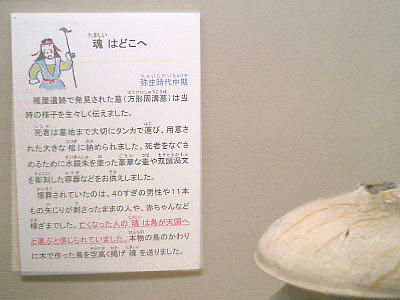 たましい
魂 はどこへ
やよいじだいちゅうき
弥生時代中期
ほうけいしゅうこうぼ
雁屋遺跡で発見された墓(方形周溝墓)は当
時の様子を生々しく伝えました。
死者は墓地まで大切にタンカで運び、用意さ
れた大きな棺に納められました。死者をなぐさ
めるために水銀朱を塗った豪華な壺や双頭渦文
を彫刻した容器などをお供えしました。
埋葬されていたのは、40すぎの男性や11本
もの矢じりが刺さったままの人や、赤ちゃんなど
たましい
様ざまでした。亡くなった人の 魂 は鳥が天国へ
と運ぶと信じられていました。本物の鳥のかわり
に木で作った鳥を空高く掲げ 魂 を送りました。